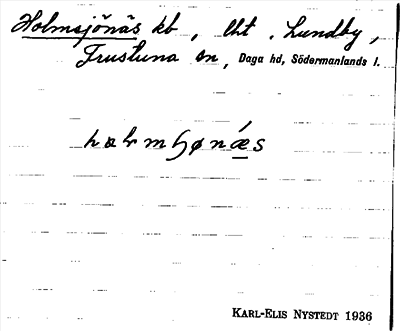 Holmsjönäs kb, Uht. Lundby,
Frustuna sn, Daga hd, Södermanlands l.
KARL-ELIS NYSTEDT 1936